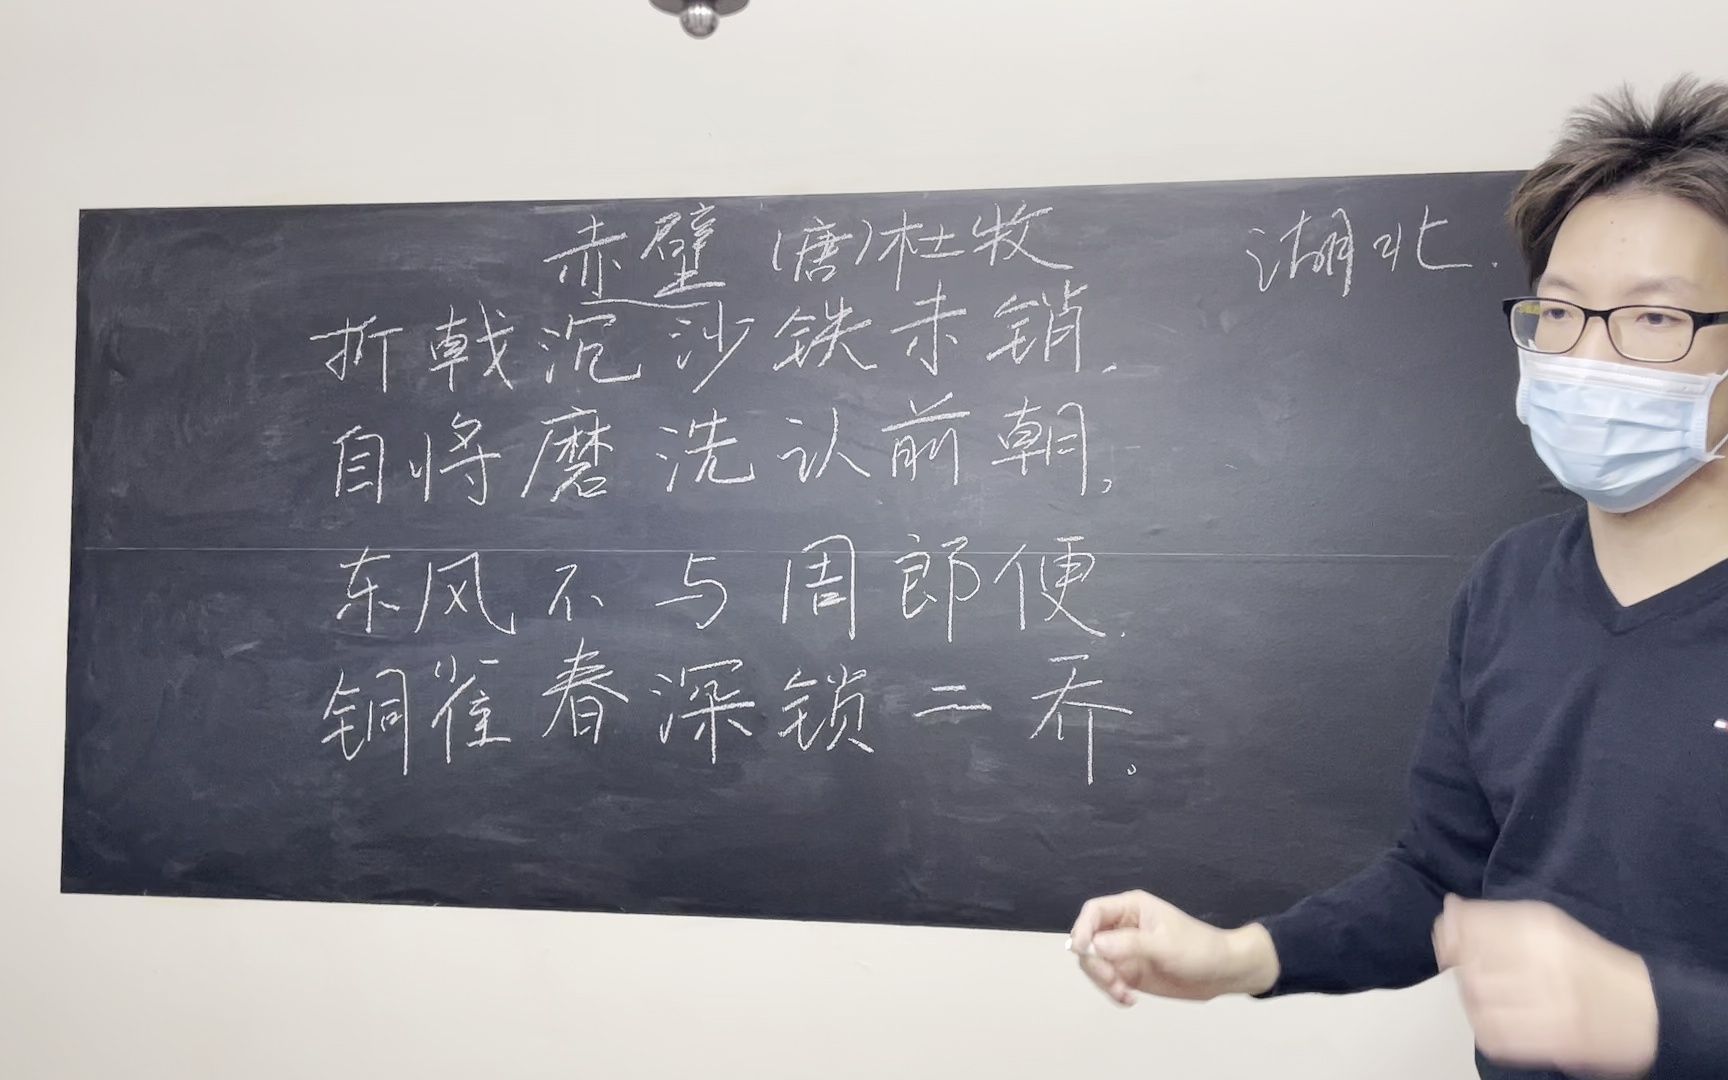 赤壁 (唐)杜牧 湖北.
折戟沉沙铁未销,
自将磨洗认前朝,
东风不与周郎便.
铜雀春深锁二乔。